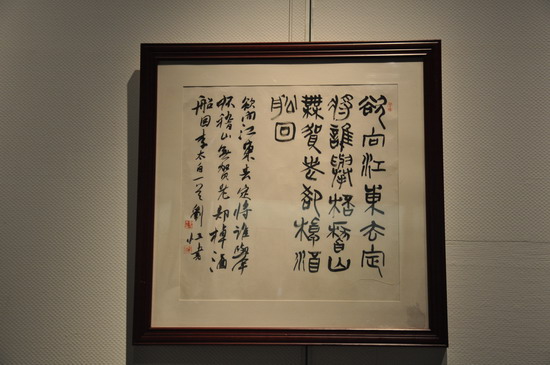 欲向江東去定
將誰舉桮稽山
無賀老卻棹酒
船回
欲向江東去定將誰舉
杯稽山無賀老却棹酒
船回李太白一首劉江書